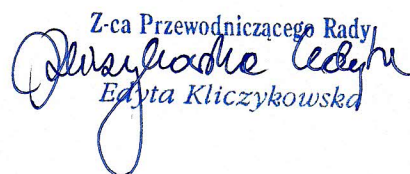 Z-ca Przewodniczącego Rady
Kliczykowska Edyta
Edyta Kliczykowska